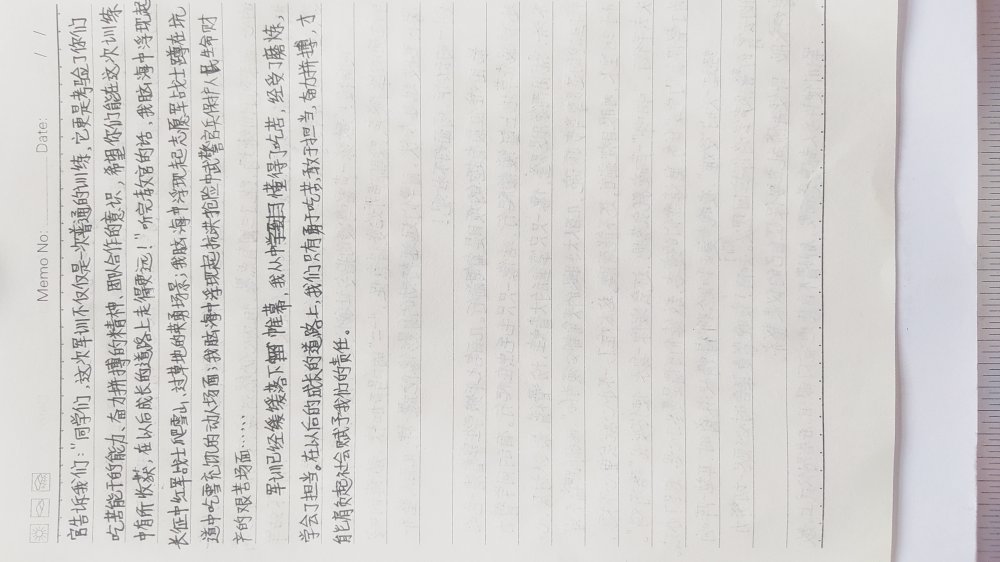 Memo No: Date: / /
官告诉我们：“同学们，这次军训不仅仅是一次普通的训练，它更是考验了你们
吃苦能干的能力、奋力拼搏的精神、团队合作的意识，希望你们能在这次训练
中有所收获，在以后成长的道路上走得更远！”听完教官的话，我脑海中浮现起
长征中红军战士爬雪山、过草地的英勇场景；我脑海中浮现起志愿军战士蹲在坑
道中吃雪充饥的动人场面；我脑海中浮现起抗洪抢险中武警官兵保护人民生命财
产的艰苦场面……
军训已经缓缓落下帷幕，我从中懂得了吃苦，经受了磨炼，
学会了担当。在以后的成长的道路上，我们只有勇于吃苦，敢于担当，奋力拼搏，才
能肩负起社会赋予我们的责任。